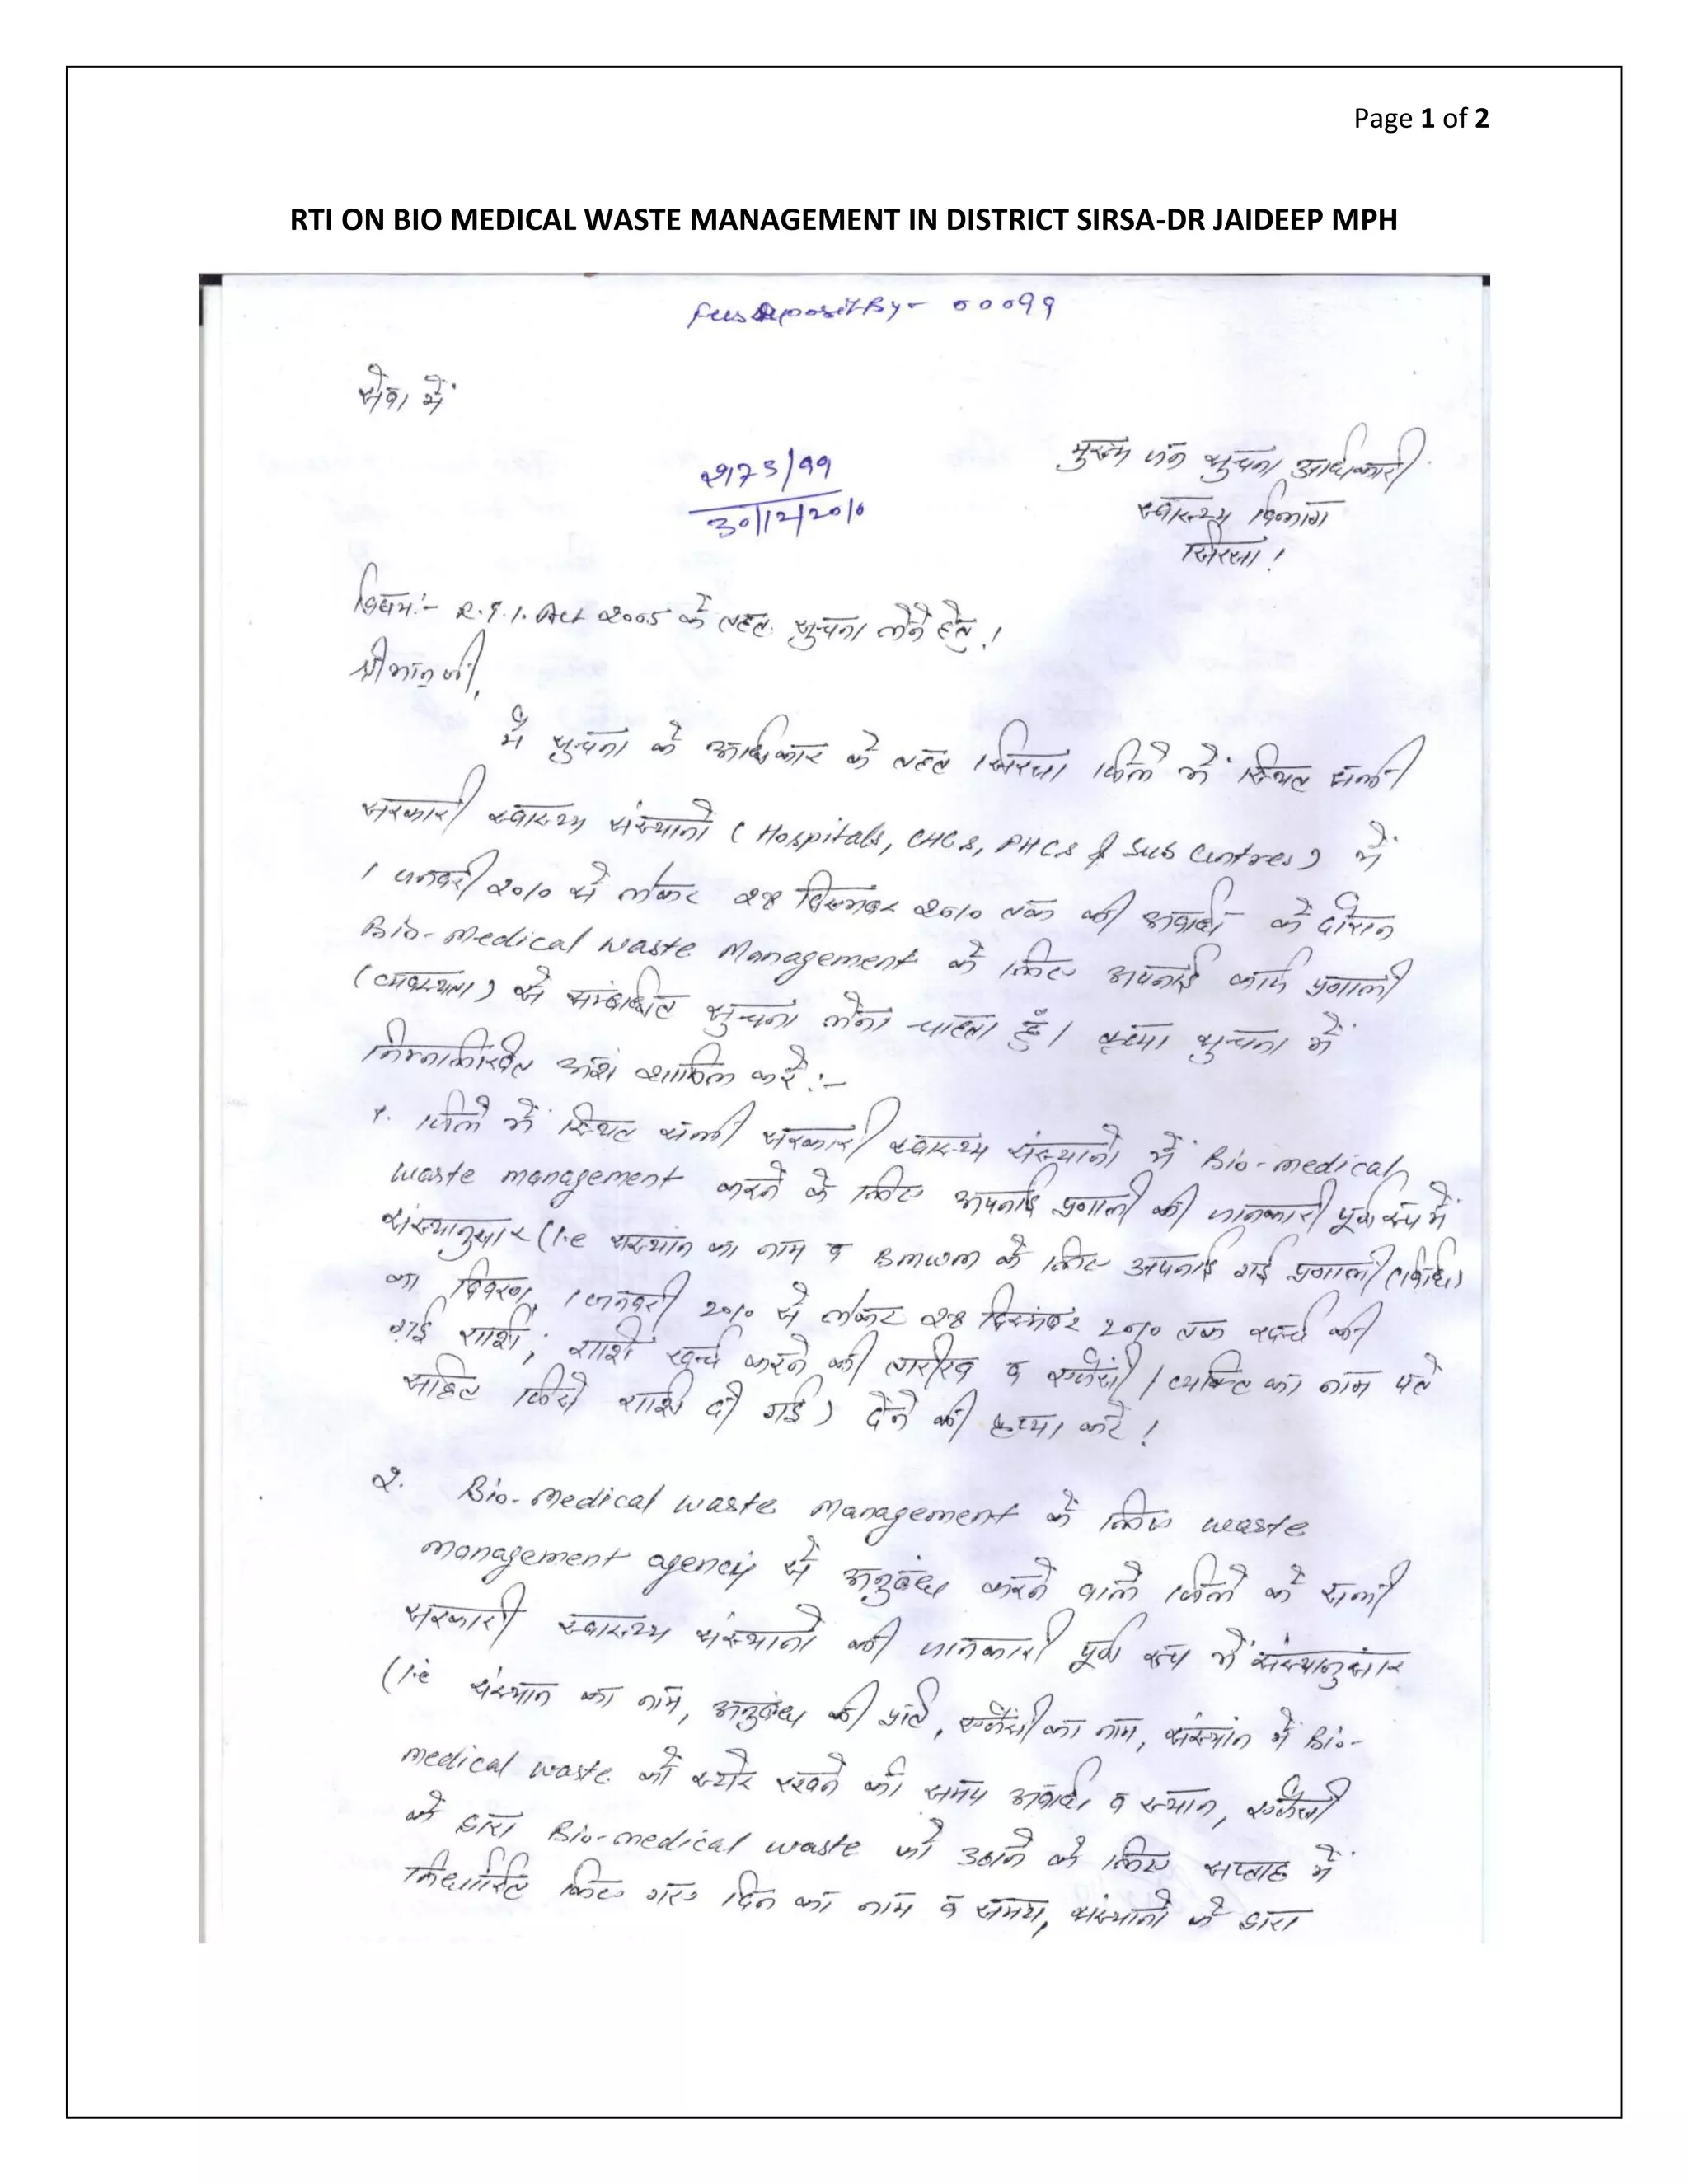 Page 1 of 2
RTI ON BIO MEDICAL WASTE MANAGEMENT IN DISTRICT SIRSA-DR JAIDEEP MPH
Fees Deposit By- 00099
सेवा में
मुख्य जन सुचना अधिकारी
2173/99
स्वास्थ्य विभाग
30/12/2010
सिरसा!
विषय:- R.T.I. Act 2005 के तहत सुचना लेने हेतु!
श्रीमान् जी,
मैं सुचना के अधिकार के तहत सिरसा जिले में स्थित सभी
सरकारी स्वास्थ्य संस्थानों (Hospitals, CHCs, PHCs & Sub Centres) में
1 जनवरी 2010 से लेकर 28 दिसम्बर 2010 तक की अवधि के दौरान
Bio-Medical Waste Management के लिए अपनाई कार्य प्रणाली
(व्यवस्था) से सम्बन्धित सुचना लेना चाहता हूँ। कृप्या सुचना में
निम्नलिखित अंश शामिल करें:-
1. जिले में स्थित सभी सरकारी स्वास्थ्य संस्थानों में Bio-medical
waste management करने के लिए अपनाई प्रणाली की जानकारी पूर्ण रूप में
संस्थानुसार (i.e संस्थान का नाम व BMWM के लिए अपनाई गई प्रणाली (विधि)
का विवरण, 1 जनवरी 2010 से लेकर 28 दिसंबर 2010 तक खर्च की
गई राशि, राशि खर्च करने की तारीख व एजेंसी/व्यक्ति का नाम पते
सहित जिसे राशि दी गई) देने की कृप्या करें!
2. Bio-Medical Waste Management के लिए waste
management agency से अनुबंध करने वाले जिले के सभी
सरकारी स्वास्थ्य संस्थानों की जानकारी पूर्ण रूप में संस्थानुसार
(i.e संस्थान का नाम, अनुबंध की प्रति, एजेंसी का नाम, संस्थान में Bio-
medical waste को स्टोर रखने की समय अवधि व स्थान, एजेंसी
के द्वारा Bio-medical waste को उठाने के लिए सप्ताह में
निर्धारित किए गए दिन का नाम व समय, संस्थानों के द्वारा